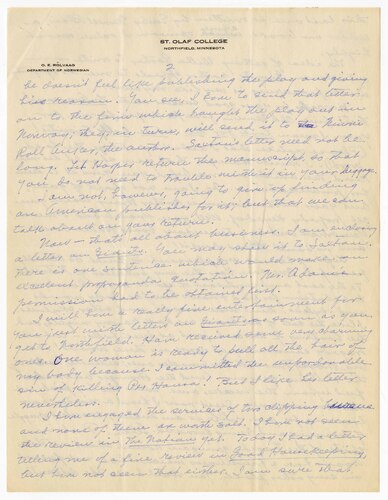 ST. OLAF COLLEGE
NORTHFIELD, MINNESOTA
O. E. ROLVAAG
DEPARTMENT OF NORWEGIAN
2
he doesn't feel like publishing the play and giving
his reason. You see, I have to send that letter
on to the firm which bought the play out in
Norway; they, in turn, will send it to Minnie
Roll the author. letter need not be
long. Let Harper return the manuscript, so that
you do not need to trouble with it in your luggage.
I am not, however, going to give up finding
an American publisher for it; but that we can
talk about on your return.
Now — that's all about business. I am enclosing
a letter on Giants. You may show it to
There is one sentence which would make an
excellent propaganda quotation. Mr. Adams
permission had to be obtained first.
I will have a really fine entertainment for
you just with letters on Giants as soon as you
get to Northfield. Have received some very charming
ones. One woman is ready to pull all the hair of
my because I committed the unpardonable
sin of killing Per Hansa! But I like her letter
nevertheless.
I have engaged the services of two clipping bureaus
and none of them are worth salt. I have not seen
the review in The Nation yet. Today I had a letter
telling me of a fine review in Good Housekeeping,
but have not seen that either. I am sure that